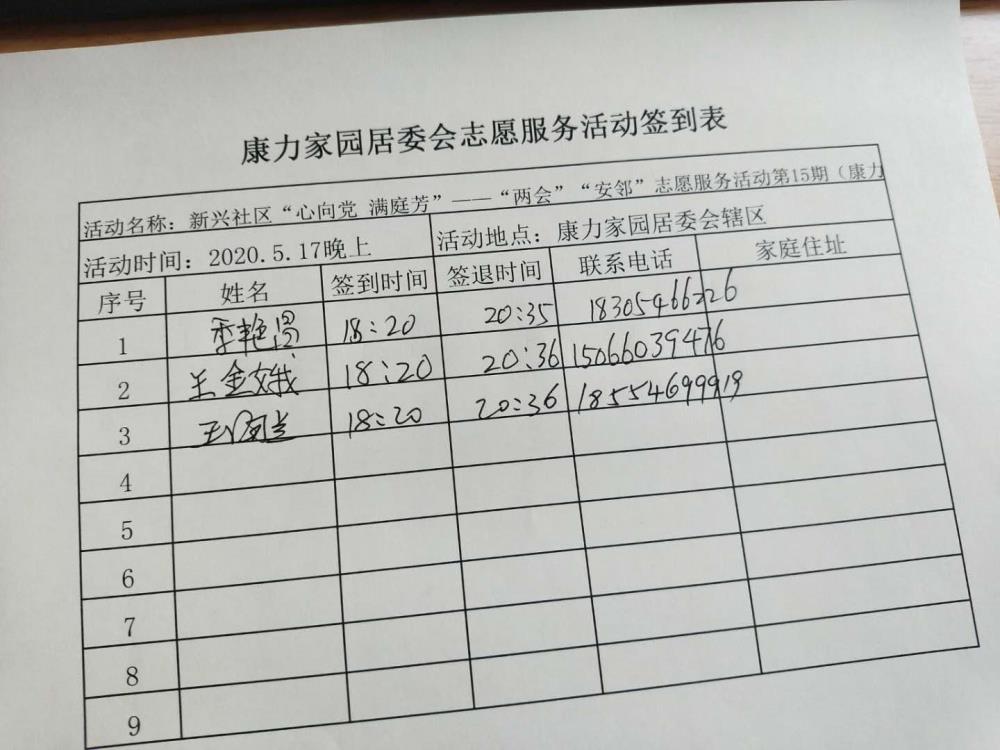 康力家园居委会志愿服务活动签到表
活动名称：新兴社区“心向党 满庭芳”——“两会”“安邻”志愿服务活动第15期（康力
活动时间：2020.5.17晚上 活动地点：康力家园居委会辖区
序号 姓名 签到时间 签退时间 联系电话 家庭住址
1 18:20 20:35 18305466226
2 王金娥 18:20 20:36 15066039476
3 18:20 20:36 18554699919
4
5
6
7
8
9